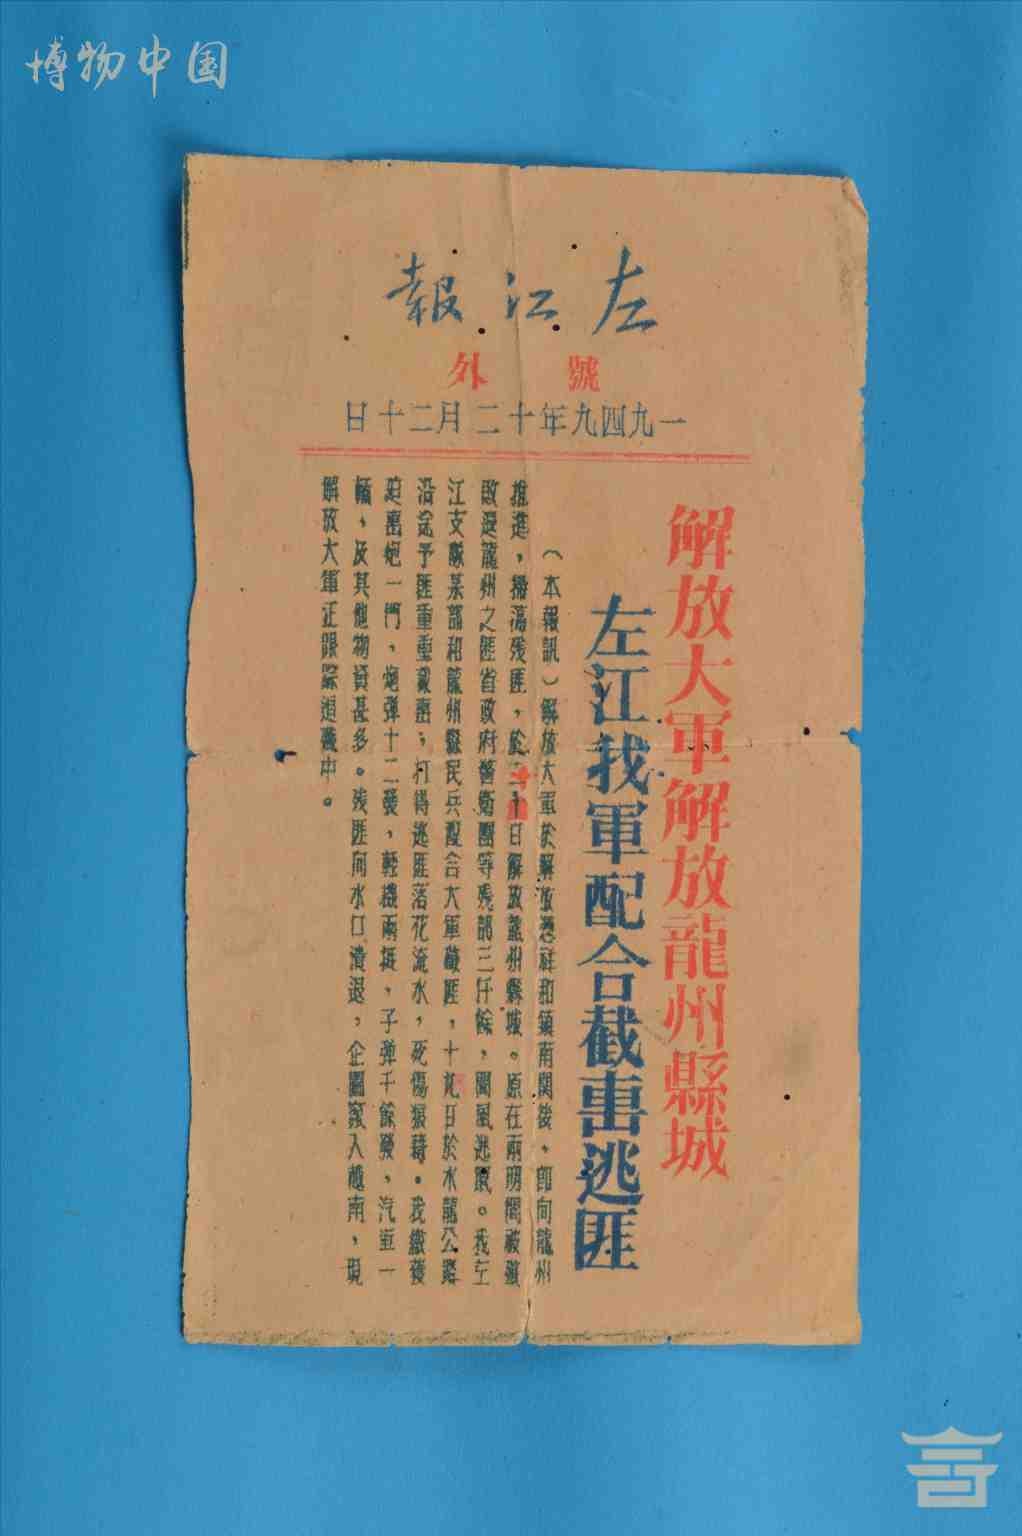 博物中国
左江報
號外
一九四九年十二月二十日
解放大軍解放龍州縣城
左江我軍配合截击逃匪
（本報訊）解放大軍於解放憑祥和鎮南関後、即向龍州
推進，掃蕩残匪，於二十日解放龍州縣城。原在南明間被殲
敗退龍州之匪省政府警衛團等残部三仟餘，聞風逃竄。我左
江支隊某部和龍州縣民兵配合大軍殲匪，十九日於水龍公路
沿途予匪重重截击，打得逃匪落花流水，死傷狼藉。我繳獲
迫击炮一門，炮弹十二發，輕機兩挺，子弹千餘發，汽車一
輛、及其他物資甚多。残匪向水口潰退，企圖竄入越南，現
解放大軍正跟踪追殲中。